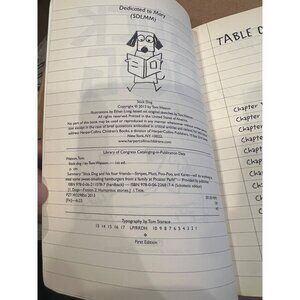 Dedicated to Mary
(SDLMM)
Stick Dog
Copyright © 2013 by Tom Watson
Illustrations by Ethan Long based on
All rights reserved. Printed in the United States of America.
No part of this book may be used or reproduced in any manner whatsoever without
written permission except in the case of brief quotations embodied in critical articles and reviews. For information
address HarperCollins Children's Books, a division of HarperCollins Publishers,
New York, NY 10022.
www.harpercollinschildrens.com
Library of Congress Cataloging-in-Publication Data
Watson, Tom
Stick Dog / by Tom Watson. — 1st ed.
p. cm.
Summary: Stick Dog and his four friends—Stripes, Mutt, Poo-Poo, and Karen—will do anything to
steal some sweet-smelling hamburgers from a family at Picasso Park—Provided by publisher.
ISBN 978-0-06-211078-7 (hardback)
[1. Dogs—Fiction. 2. Humorous stories.] I. Title.
PZ7.W3298Sti 2013
[Fic]—dc23
Typography by Tom Starace
13 14 15 16 17 LP/RRDH 10 9 8 7 6 5 4 3 2 1
First Edition
TABLE
Chapter
Chapter
Chapter
Chapter